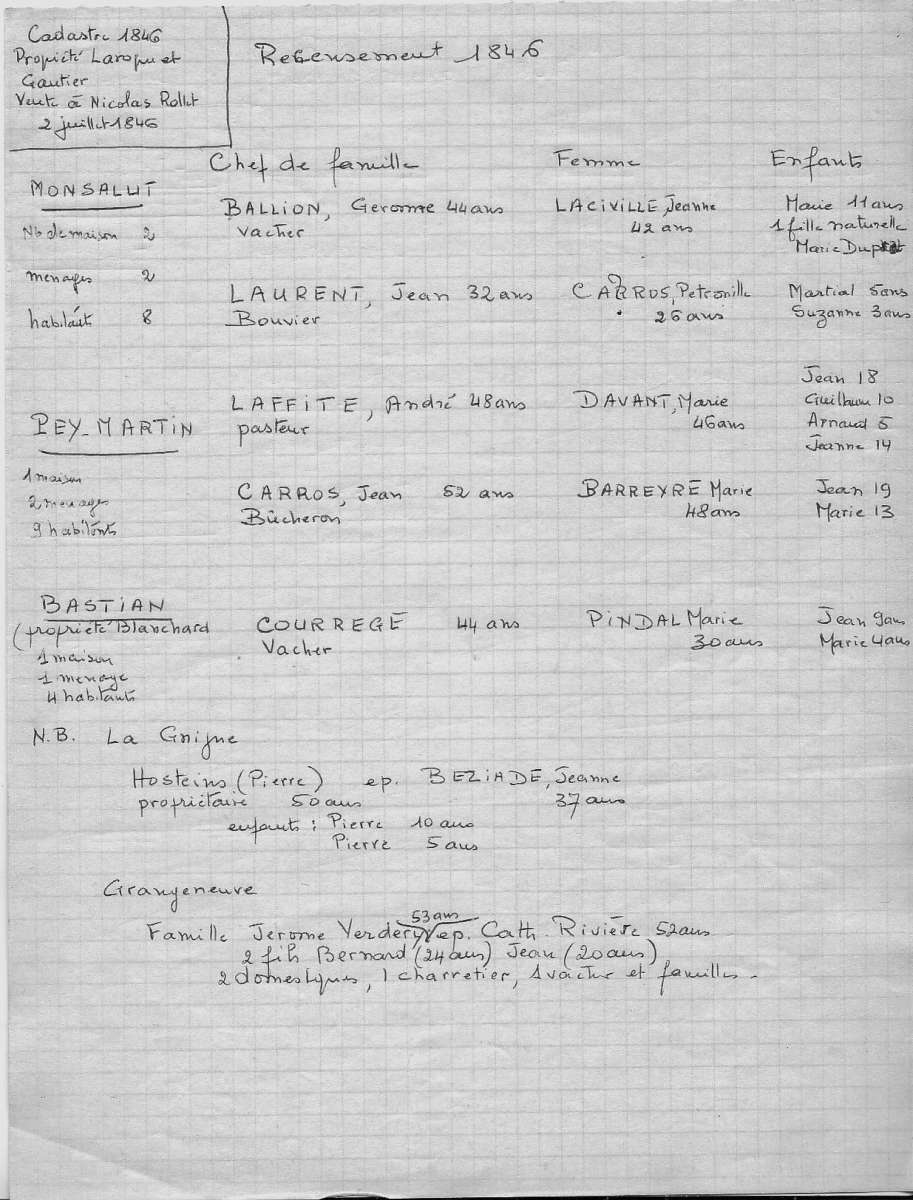 Cadastre 1846
Propriété Laroque et
Gautier
Vente à Nicolas Rollet
2 juillet 1846
Recensement 1846
Chef de famille Femme Enfants
MONSALUT
Nb de maison 2
menages 2
habitants 8
BALLION, Gerome 44 ans LACIVILLE, Jeanne Marie 11 ans
Vacher 42 ans 1 fille naturelle
Marie
LAURENT, Jean 32 ans CARROS, Petronille Martial 5 ans
Bouvier 26 ans Suzanne 3 ans
PEY-MARTIN
1 maison
2 menages
9 habitants
LAFFITE, André 48 ans DAVANT, Marie Jean 18
pasteur 46 ans Guilhem 10
Arnaud 5
Jeanne 14
CARROS, Jean 52 ans BARREYRE Marie Jean 19
Bûcheron 48 ans Marie 13
BASTIAN
(propriété Blanchard
1 maison
1 menage
4 habitants
COURREGE 44 ans PINDAL Marie Jean 9 ans
Vacher 30 ans Marie 4 ans
N.B. La Gnigne
Hosteins (Pierre) ep. BEZIADE, Jeanne
propriétaire 50 ans 37 ans
enfants : Pierre 10 ans
Pierre 5 ans
Grangeneuve
53 ans
Famille Jerome Verdery ep. Cath. Rivière 52 ans
2 fils Bernard (24 ans) Jean (20 ans)
2 domestiques, 1 charretier, 1 vacher et familles.